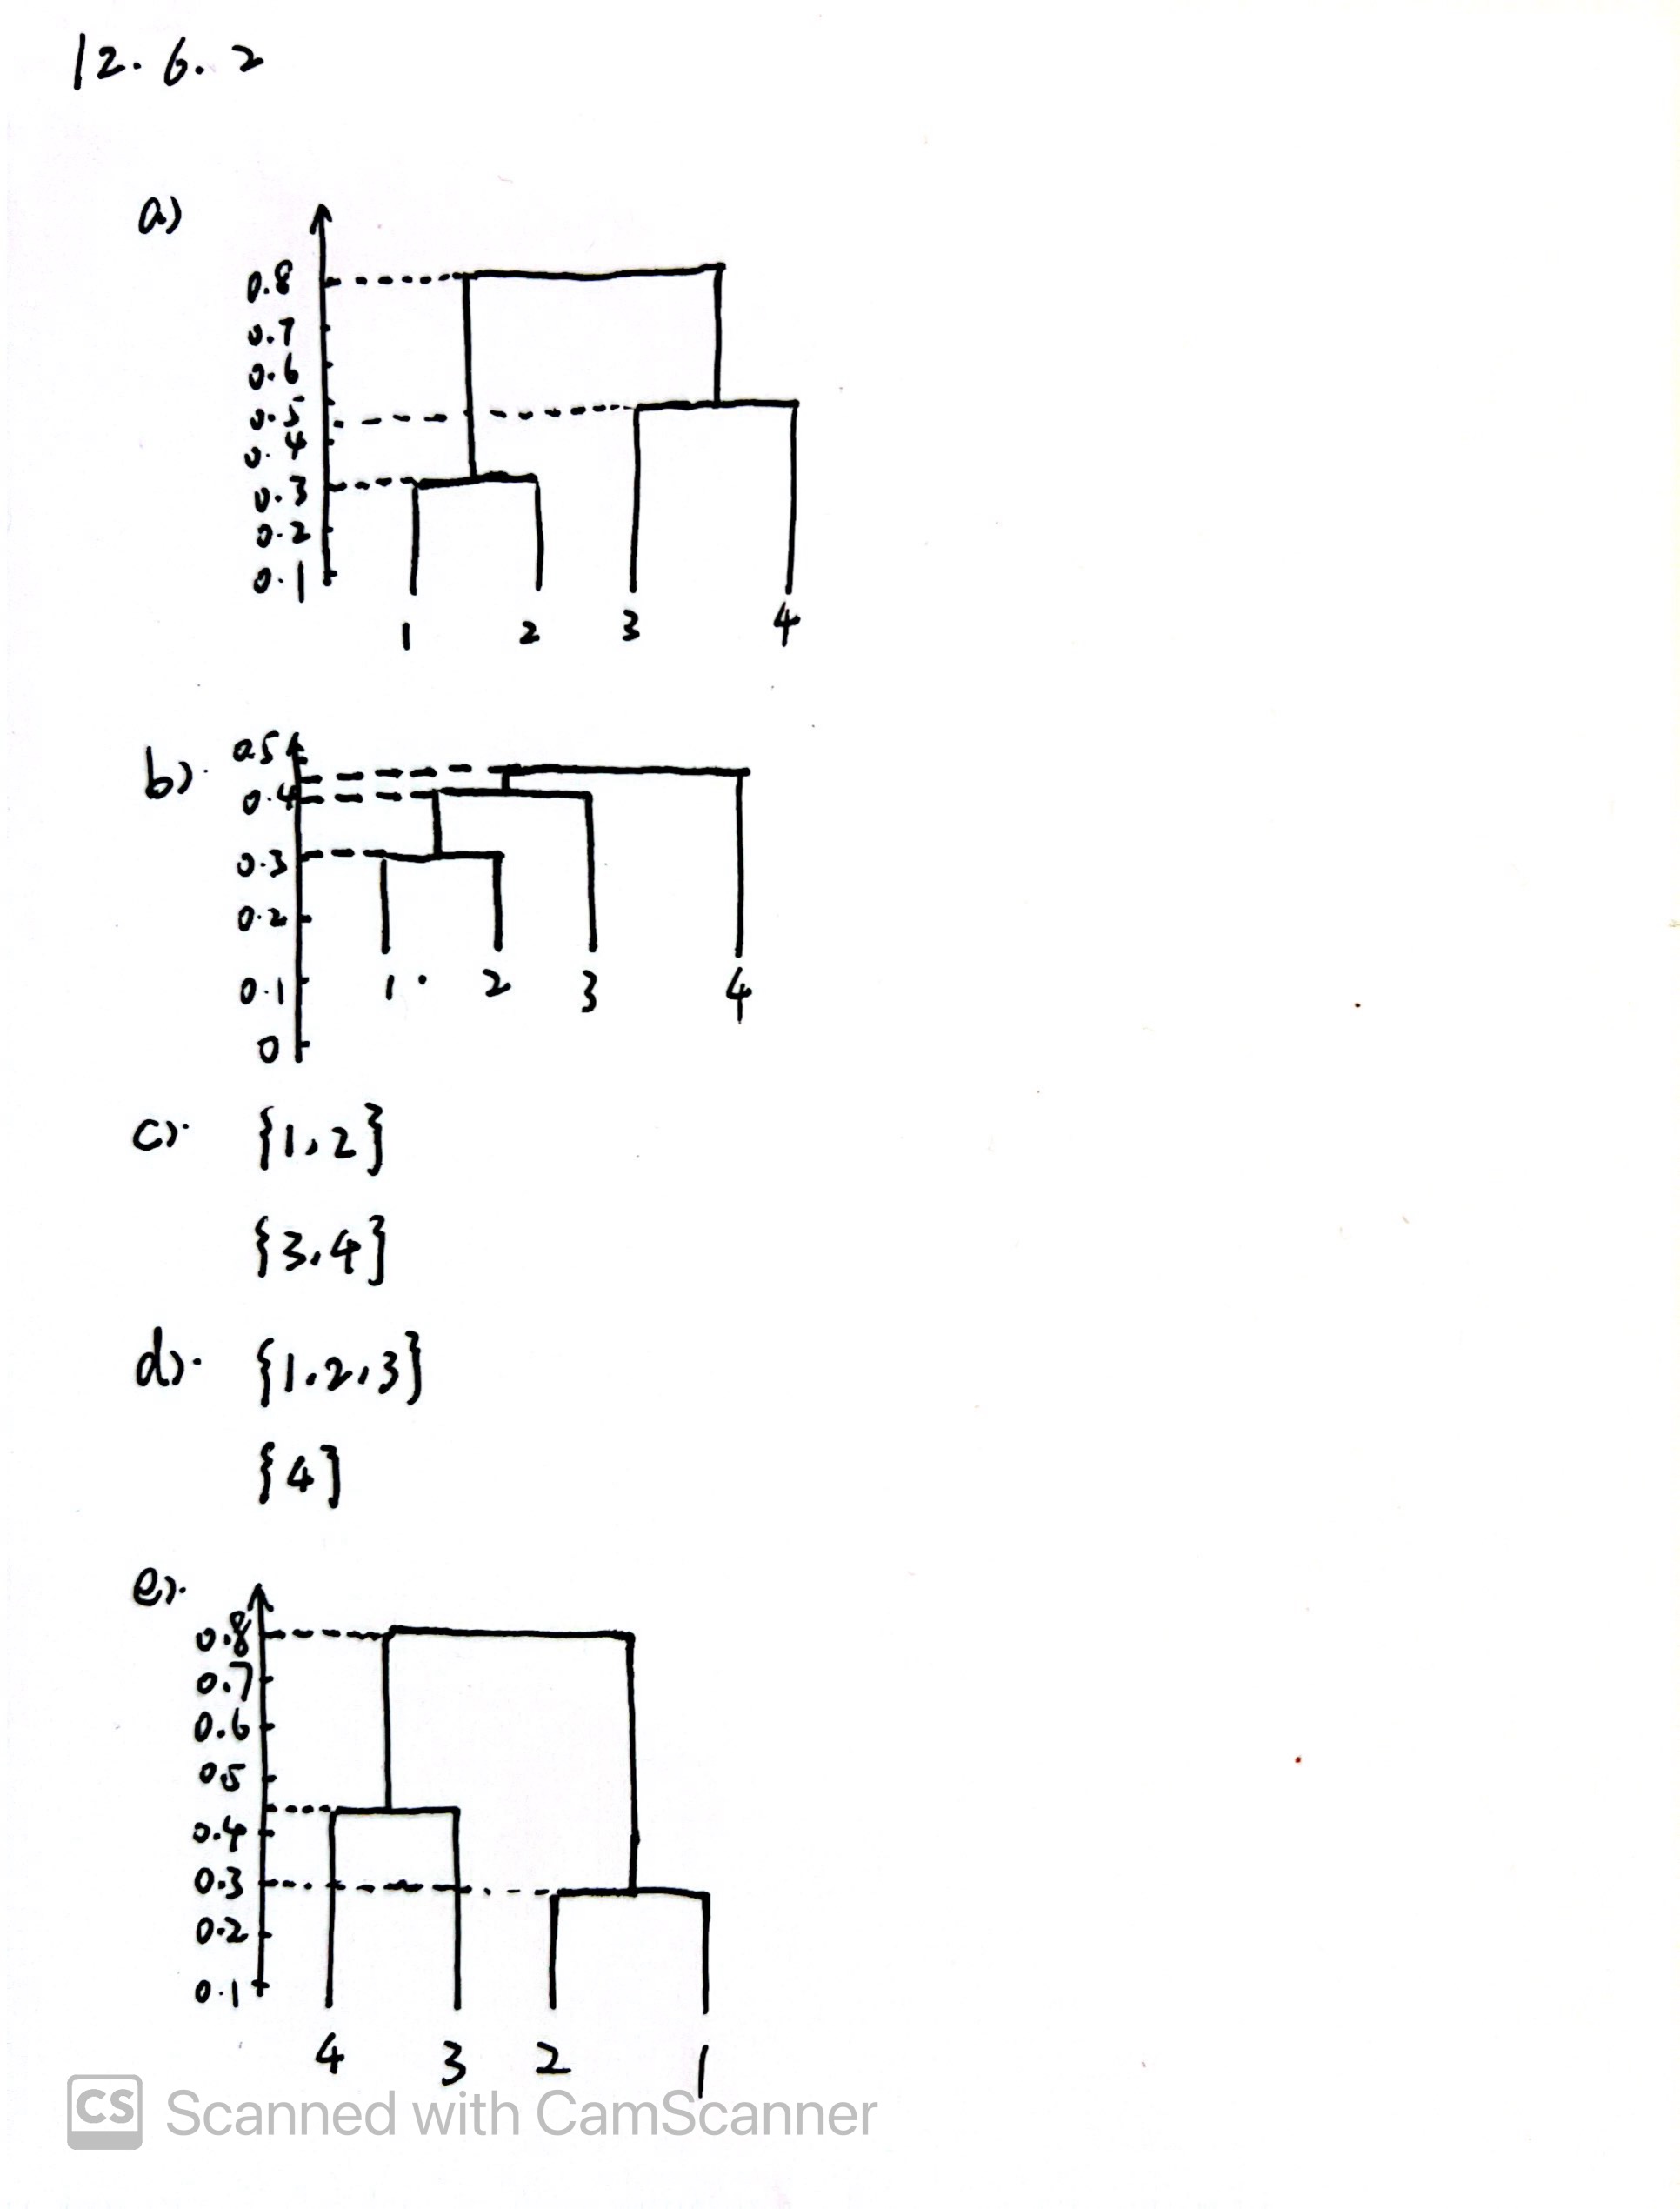 12.6.2
a)
0.8
0.7
0.6
0.5
0.4
0.3
0.2
0.1
1 2 3 4
b).
0.5
0.4
0.3
0.2
0.1
0
1. 2 3 4
c). {1,2}
{3,4}
d). {1.2,3}
{4}
e).
0.8
0.7
0.6
0.5
0.4
0.3
0.2
0.1
4 3 2 1
CS Scanned with CamScanner